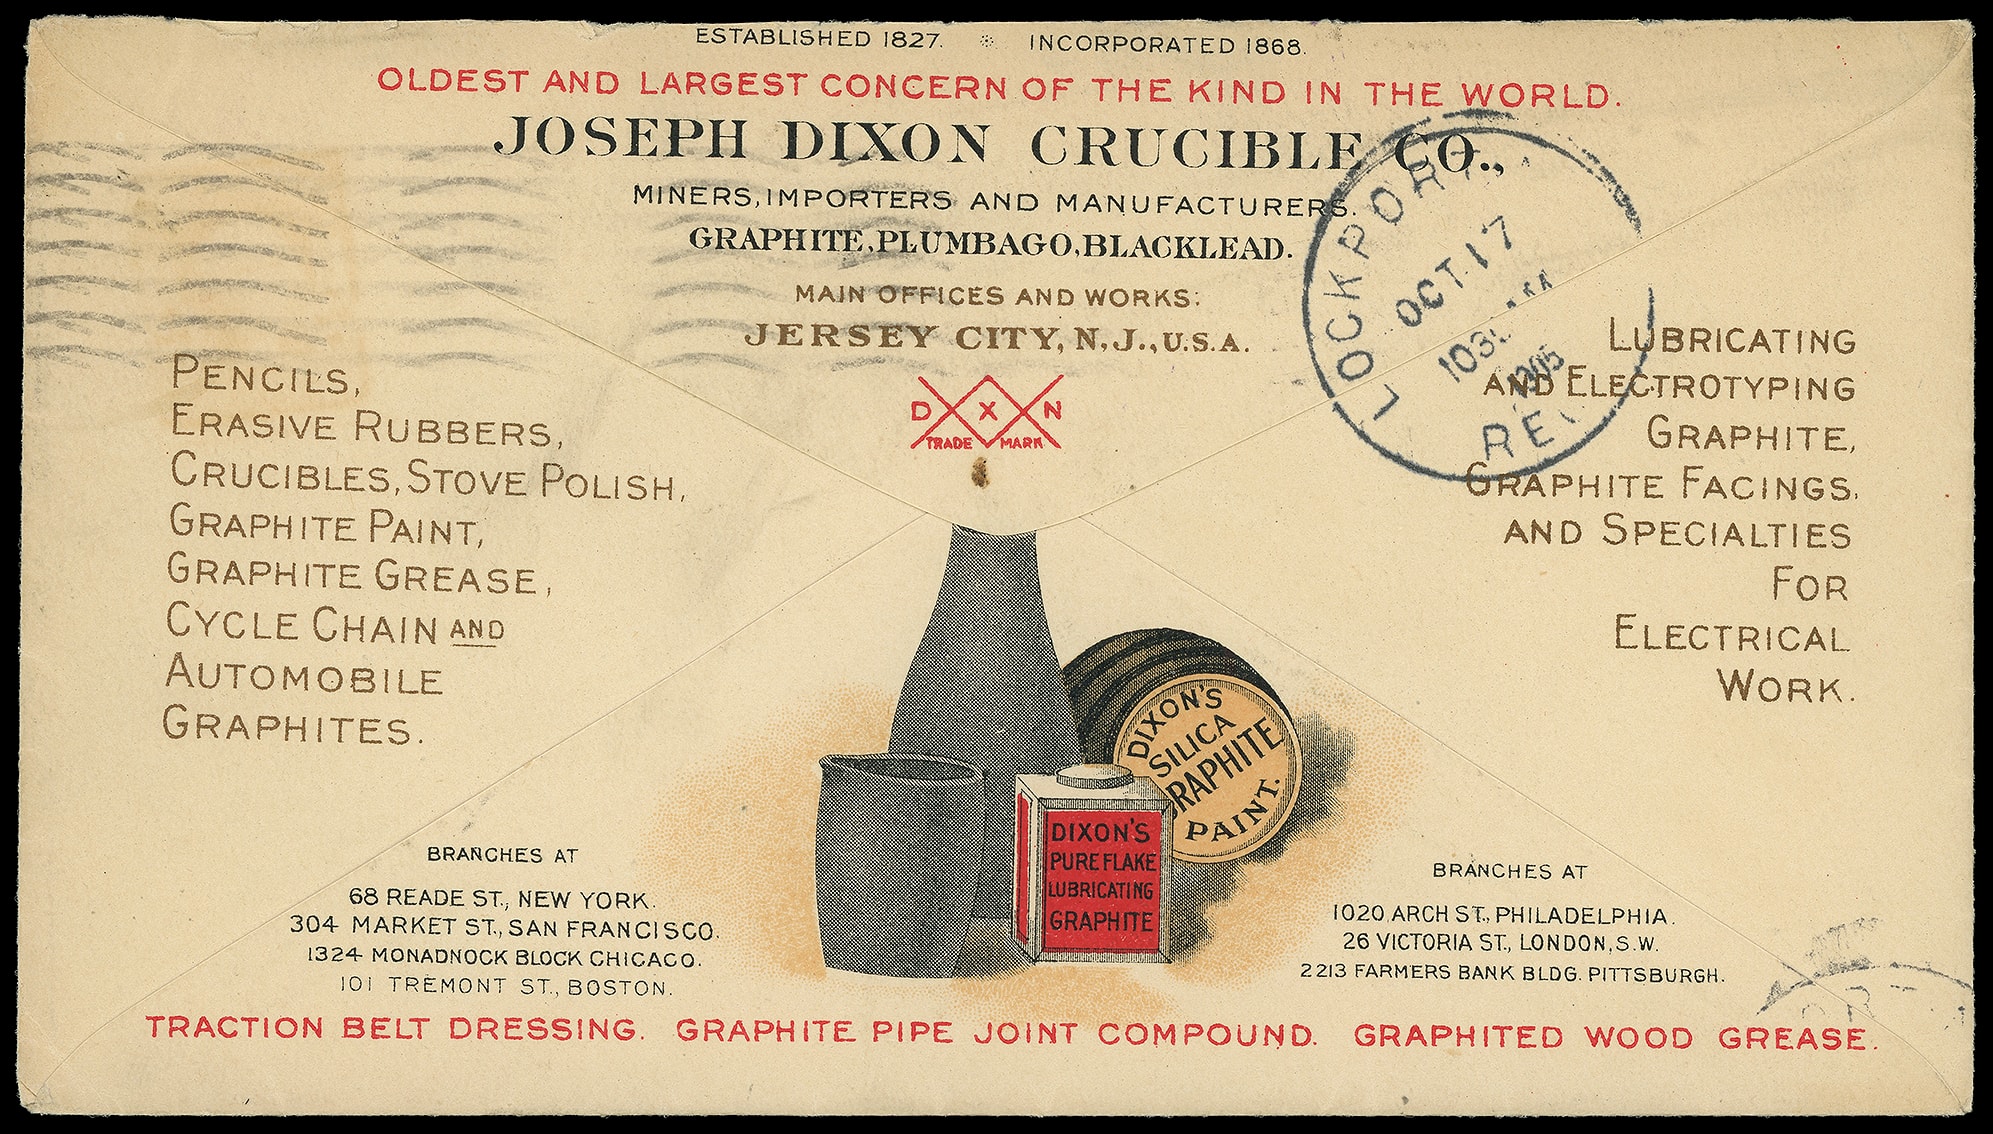 ESTABLISHED 1827. INCORPORATED 1868.
OLDEST AND LARGEST CONCERN OF THE KIND IN THE WORLD.
JOSEPH DIXON CRUCIBLE CO.,
MINERS, IMPORTERS AND MANUFACTURERS.
GRAPHITE, PLUMBAGO, BLACKLEAD.
MAIN OFFICES AND WORKS:
JERSEY CITY, N.J., U.S.A.
D X N
TRADE MARK
LOCKPORT
OCT 17
1905
REC
PENCILS,
ERASIVE RUBBERS,
CRUCIBLES, STOVE POLISH,
GRAPHITE PAINT,
GRAPHITE GREASE,
CYCLE CHAIN AND
AUTOMOBILE
GRAPHITES.
LUBRICATING
AND ELECTROTYPING
GRAPHITE,
GRAPHITE FACINGS,
AND SPECIALTIES
FOR
ELECTRICAL
WORK.
DIXON'S
SILICA
GRAPHITE
PAINT.
DIXON'S
PURE FLAKE
LUBRICATING
GRAPHITE
BRANCHES AT
68 READE ST., NEW YORK.
304 MARKET ST., SAN FRANCISCO.
1324 MONADNOCK BLOCK CHICACO.
101 TREMONT ST., BOSTON.
BRANCHES AT
1020 ARCH ST., PHILADELPHIA.
26 VICTORIA ST., LONDON, S.W.
2213 FARMERS BANK BLDG. PITTSBURGH.
TRACTION BELT DRESSING. GRAPHITE PIPE JOINT COMPOUND. GRAPHITED WOOD GREASE.